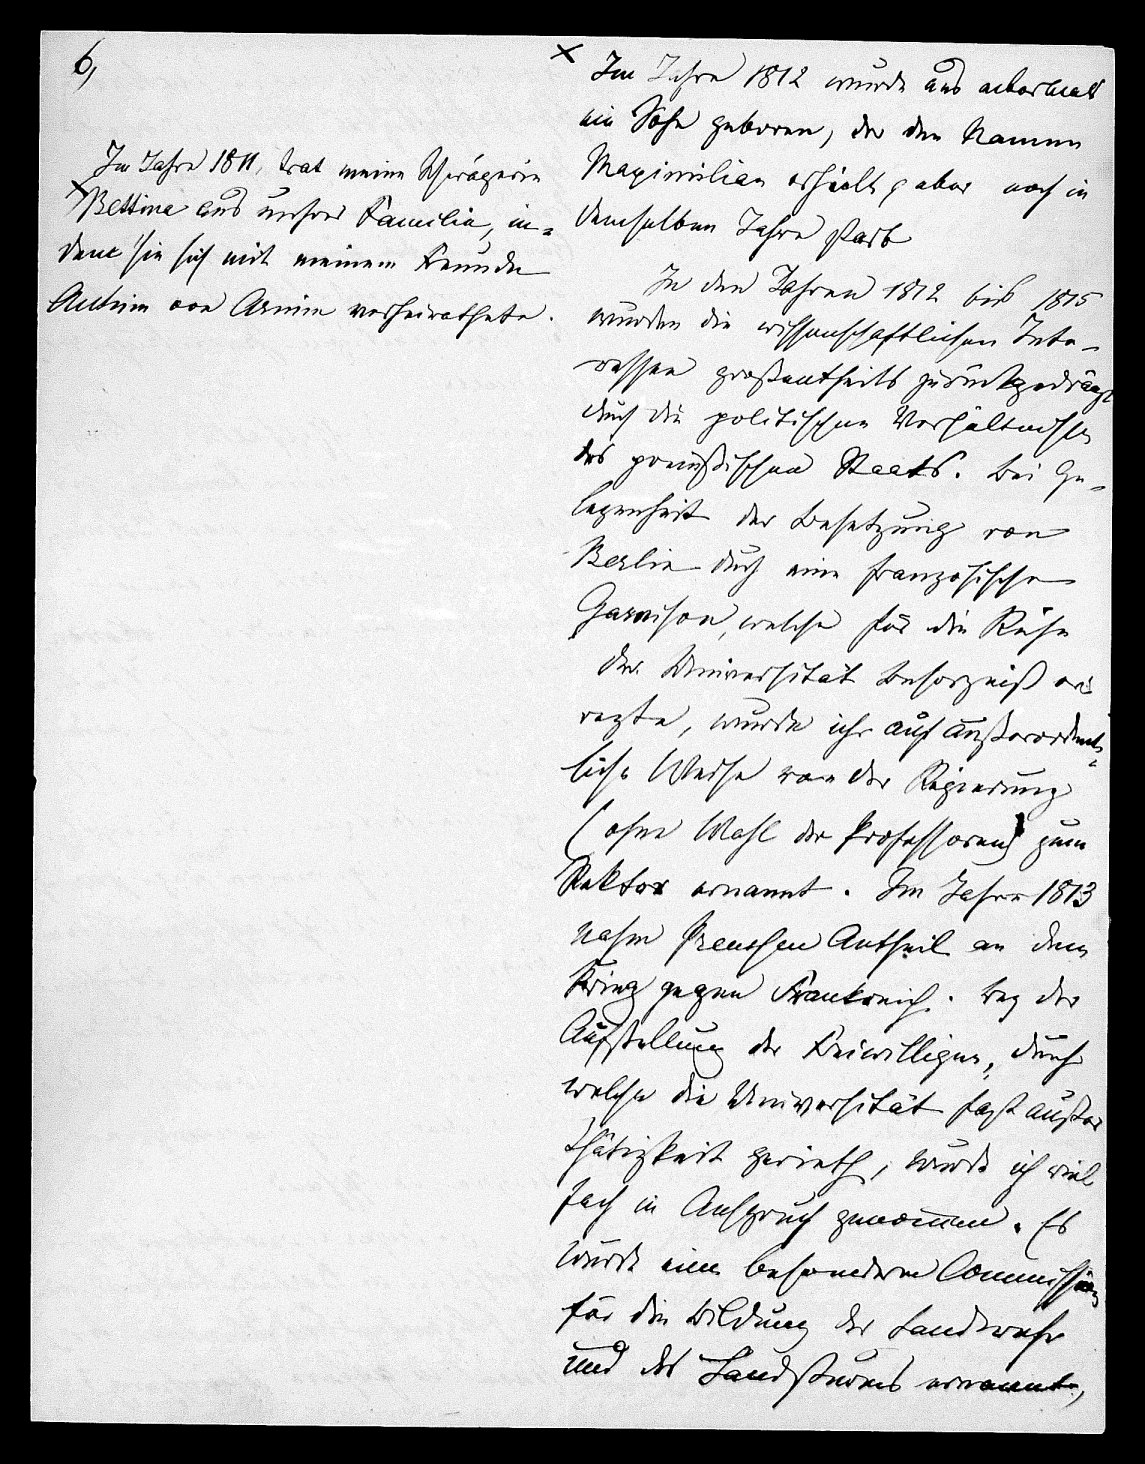 6,
Im Jahre 1811, trat meine Schwägerin
× Bettina aus unsrer Familie, in-
dem sie sich mit meinem Freunde
Achim von Arnim verheirathete.
× Im Jahre 1812 wurde uns abermals
ein Sohn geboren, der den Namen
Maximilian erhielt, aber noch in
demselben Jahre starb
In den Jahren 1812 bis 1815
wurden die wissenschaftlichen Inte-
ressen großentheils zurückgedrängt
durch die politischen Verhältnisse
des preußischen Staats. Bei Ge-
legenheit der Besetzung von
Berlin durch eine französische
Garnison, welche für die Ruhe
der Universität Besorgniß er
regte, wurde ich auf außerordent-
liche Weise von der Regierung
(ohne Wahl der Professoren) zum
Rektor ernannt. Im Jahre 1813
nahm Preußen Antheil an dem
Krieg gegen Frankreich. Bey der
Aufstellung der Freiwilligen, durch
welche die Universität fast außer
Thätigkeit gerieth, wurde ich viel
fach in Anspruch genommen. Es
wurde eine besondere Commission
für die Bildung der Landwehr
und des Landsturms ernannt,